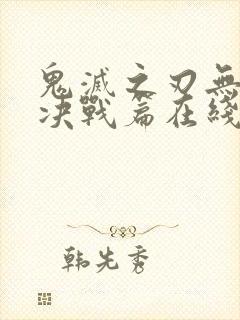 鬼滅之刃無
决戰篇在綫
韩先秀